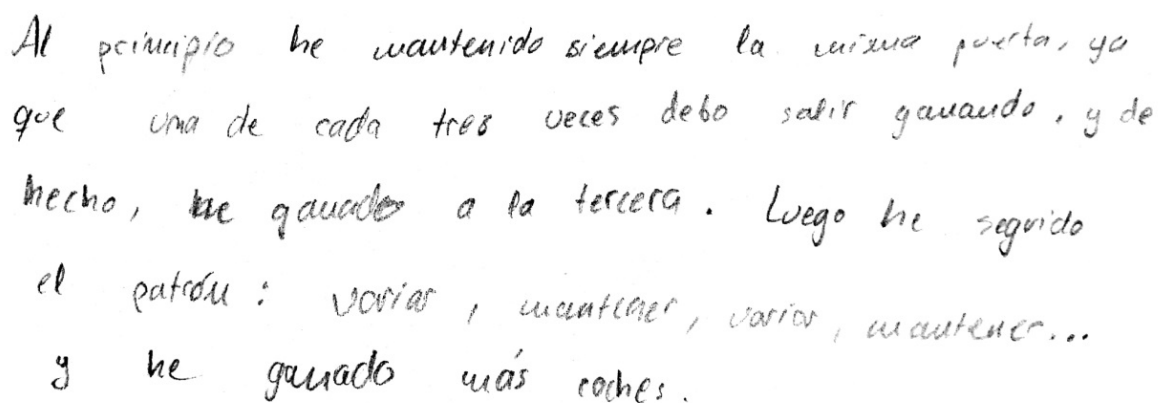 Al principio he mantenido siempre la misma puerta, ya
que una de cada tres veces debo salir ganando, y de
hecho, he ganado a la tercera. Luego he seguido
el patrón: variar, mantener, variar, mantener...
y he ganado más coches.